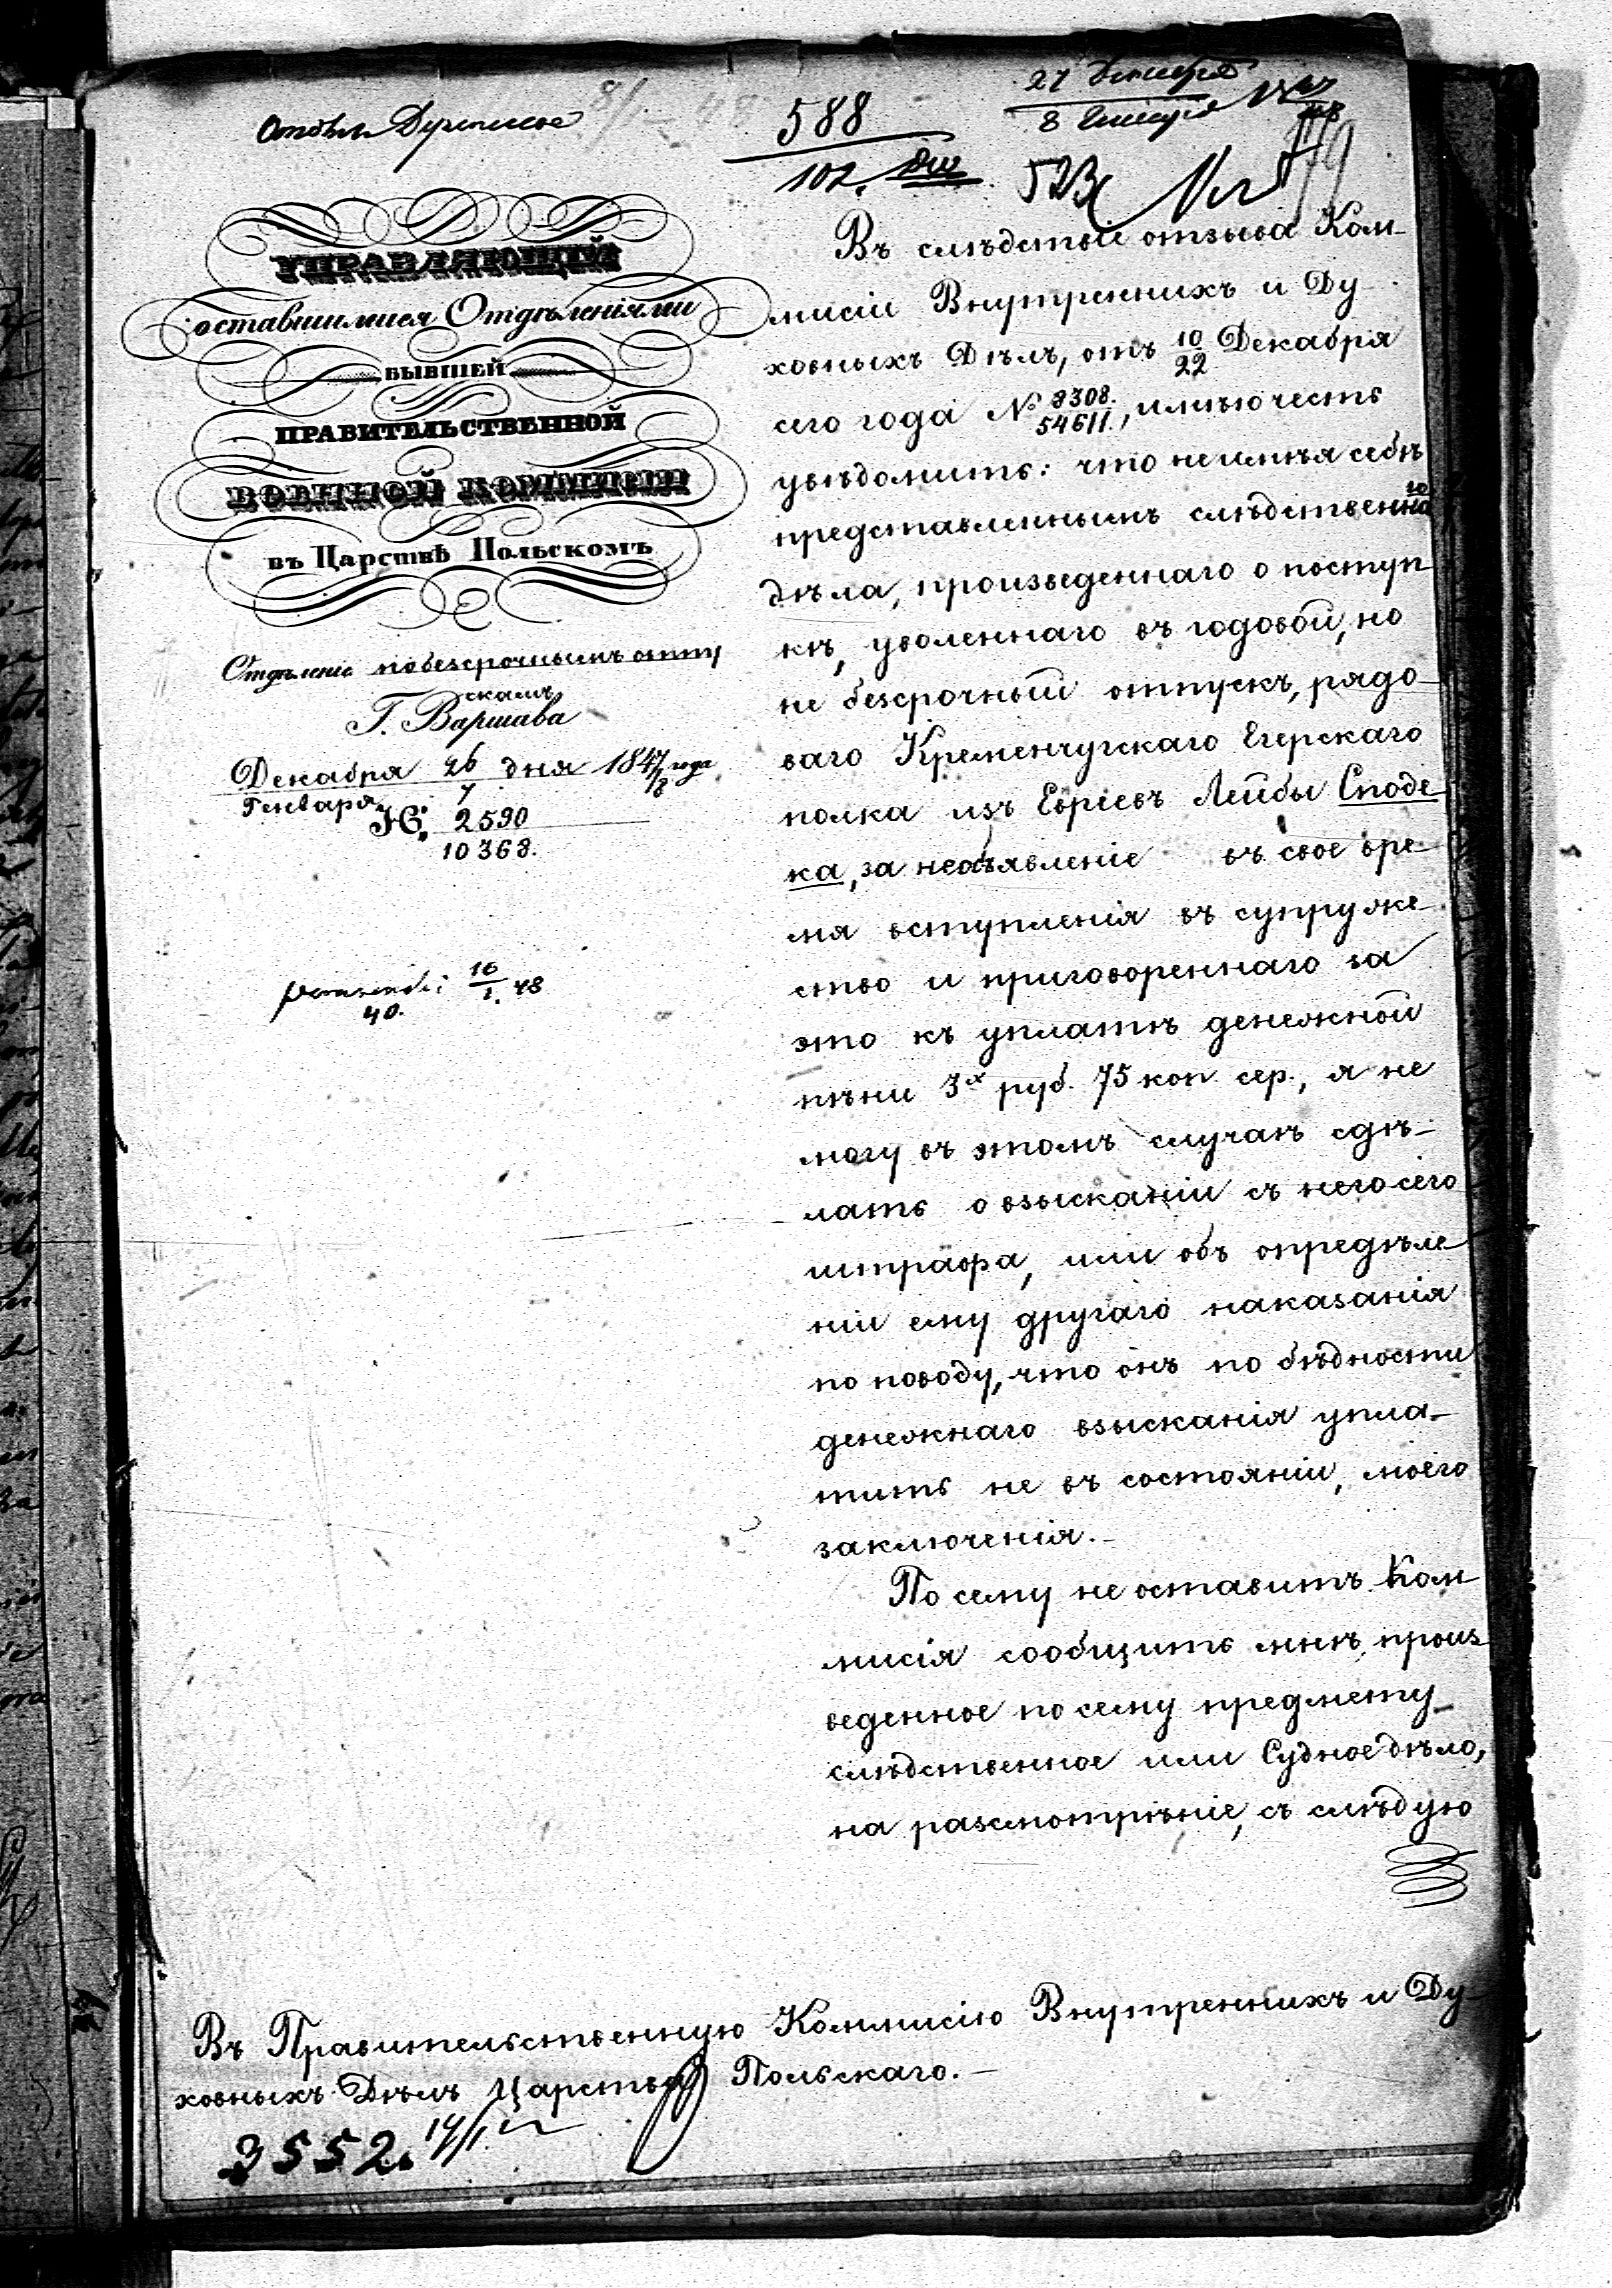 588
102.
27 Декабря
8 Генваря
523
УПРАВЛЯЮЩІЙ
оставшимися Отдѣленіями
БЫВШЕЙ
ПРАВИТЕЛЬСТВЕННОЙ
ВОЕННОЙ КОММИСІИ
въ Царствѣ Польскомъ
Отдѣленіе по безсрочнымъ отпу
скамъ
Г. Варшава
Декабря 26 дня 1847/8 года
Генваря 7
№ 2590
10368.
16/1. 48
40.
Въ слѣдствіе отзыва Ком-
мисіи Внутреннихъ и Ду-
ховныхъ Дѣлъ, отъ 10/22 Декабря
сего года № 8308./54611., имѣю честь
увѣдомить: что не имѣя себѣ
представленнымъ слѣдственнаго
дѣла, произведеннаго о поступ
кѣ, уволеннаго въ годовой, но
не безсрочный отпускъ, рядо-
ваго Кременчугскаго Егерскаго
полка изъ Евреевъ Лейбы Споде
ка, за необъявленіе въ свое вре-
мя вступленія въ супруже-
ство и приговореннаго за
это къ уплатѣ денежной
пѣни 3х руб. 75 коп. сер., я не
могу въ этомъ случаѣ сдѣ-
лать о взысканіи съ него сего
штрафа, или объ опредѣле
ніи ему другаго наказанія
по поводу, что онъ по бѣдности
денежнаго взысканія упла-
тить не въ состояніи, моего
заключенія.-
По сему не оставитъ Ком
мисія сообщить мнѣ, произ
веденное по сему предмету
слѣдственное или Судное дѣло,
на разсмотрѣніе, съ слѣдую
Въ Правительственную Коммисію Внутреннихъ и Ду-
ховныхъ Дѣлъ Царства Польскаго.-
3552.